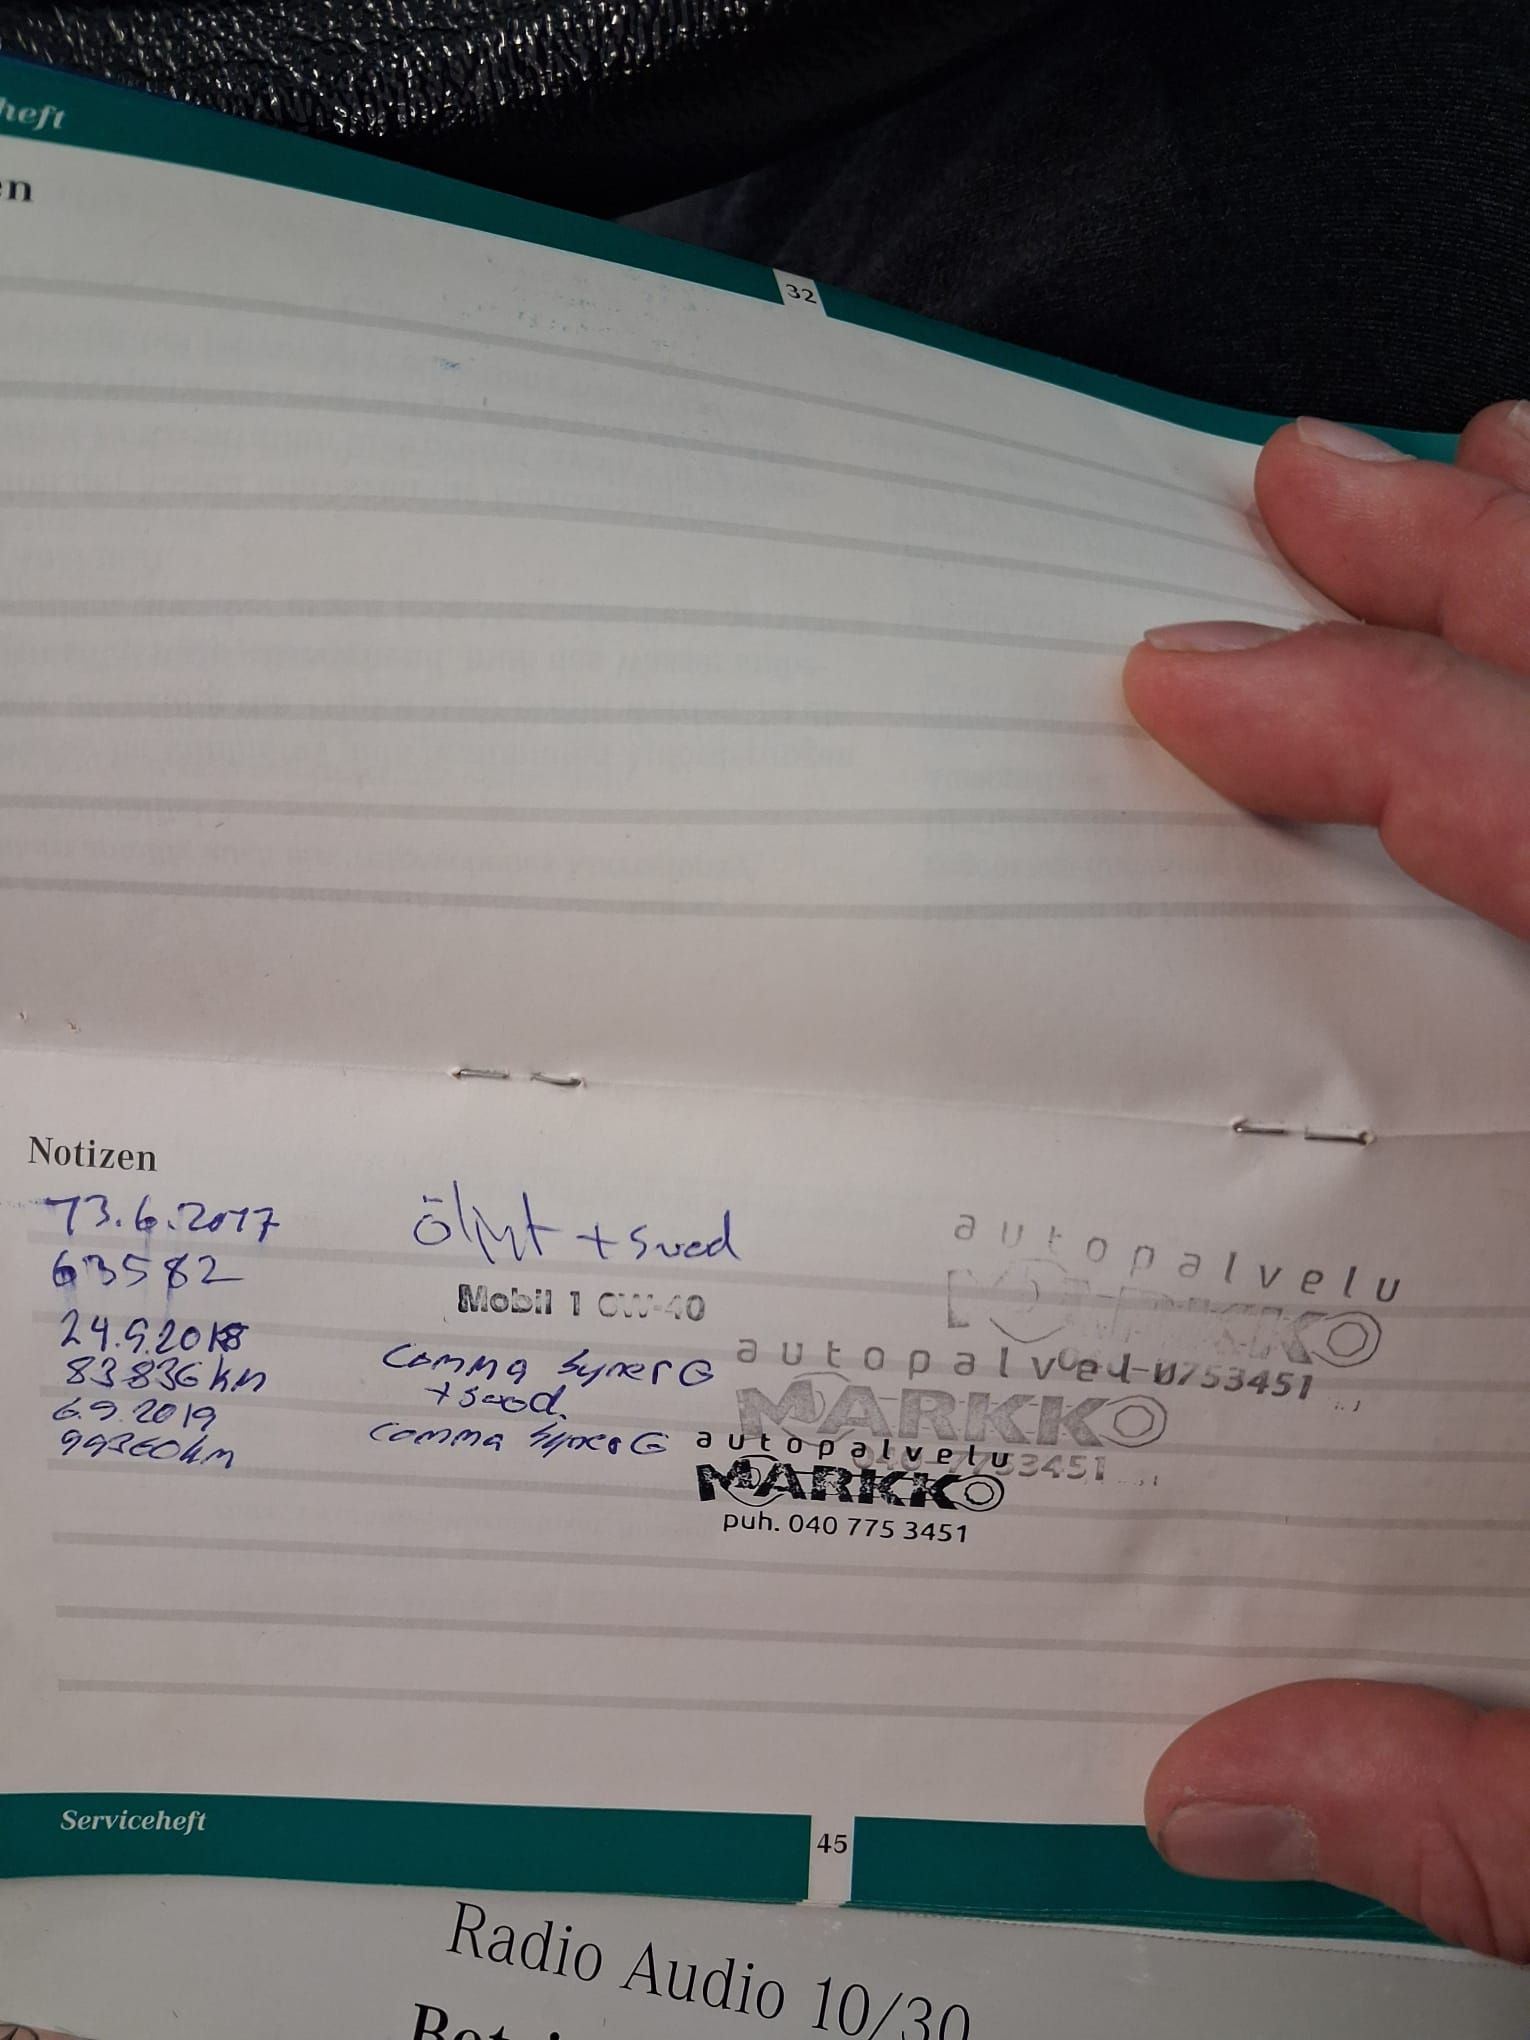 heft
en
32
Notizen
13.6.2017
öljyt + suod
autopalvelu
63582
Mobil 1 0W-40
MARKKO
24.9.2018
autopalvelu
83836 km
Comma Syner G
+ suod.
MARKKO
6.9.2019
Comma Syner G
autopalvelu
99360 km
MARKKO
puh. 040 775 3451
Serviceheft
45
Radio Audio 10/30